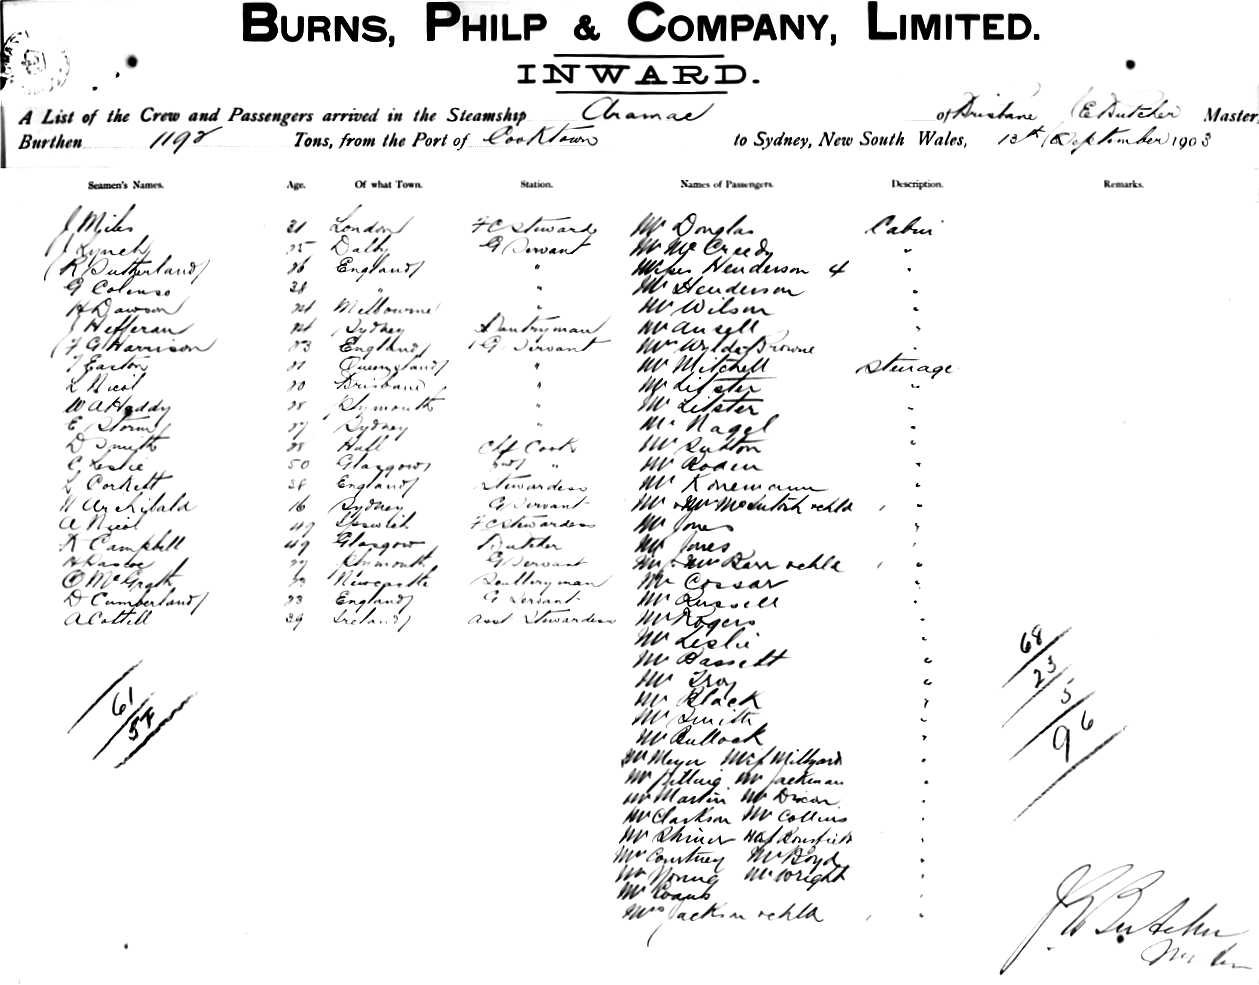 BURNS, PHILP & COMPANY, LIMITED.
INWARD.
A List of the Crew and Passengers arrived in the Steamship Aramac of Brisbane J E Butcher Master,
Burthen 1192 Tons, from the Port of Cooktown to Sydney, New South Wales, 13th September 1903
Seamen's Names. Age. Of what Town. Station. Names of Passengers. Description. Remarks.
J Miles 21 London F C Steward Mr Douglas Cabin
J Lynch 25 Dalby G Servant Mr McCreedy "
R Sutherland 26 England " Misses Henderson 4 "
G Colenso 28 " " Mr Henderson "
H Dawson 24 Melbourne " Mr Wilson "
J Hefferan 24 Sydney Pantryman Mr Ansell "
F G Harrison 23 England G Servant Mrs Wylde Browne "
T Easton 21 Queensland " Mr Mitchell Steerage
L Nicol 20 Brisbane " Mr Litster "
W A Hoddy 28 Plymouth " Mr Litster "
E Storm 27 Sydney " Mr Nagel "
D Smith 28 Hull Chf Cook Mr Sutton "
C Leslie 50 Glasgow 2nd " Mr Roden "
L Corkett 38 England Stewardess Mr Konemann "
W Archibald 16 Sydney G Servant Mr & Mrs McIntosh & chld "
A Nicol 49 Ipswich F C Stewardess Mr Jones "
K Campbell 49 Glasgow Butcher Mr Jones "
H Pascoe 27 Plymouth G Servant Mr & Mrs Barr & chld "
O McGrath 23 Newcastle Sculleryman Mr Cossar "
D Cumberland 23 England G Servant Mr Russell "
A Cottell 29 Ireland Asst Stewardess Mr Rogers "
Mr Leslie "
Mr Bassett "
Mr Troy "
Mr Black "
Mr Smith "
Mr Bullock "
Mr Meyer Miss Millyard "
Mr Jackman "
Mr Martin Mr Dixon "
Mr Clarkson Mr Collins "
Mr "
Mr Courtney Mr Boyd "
Mr Young Mr Wright "
Mr Evans "
Mrs Jackson & chld "
61
54
68
23
5
96
J E Butcher
Master